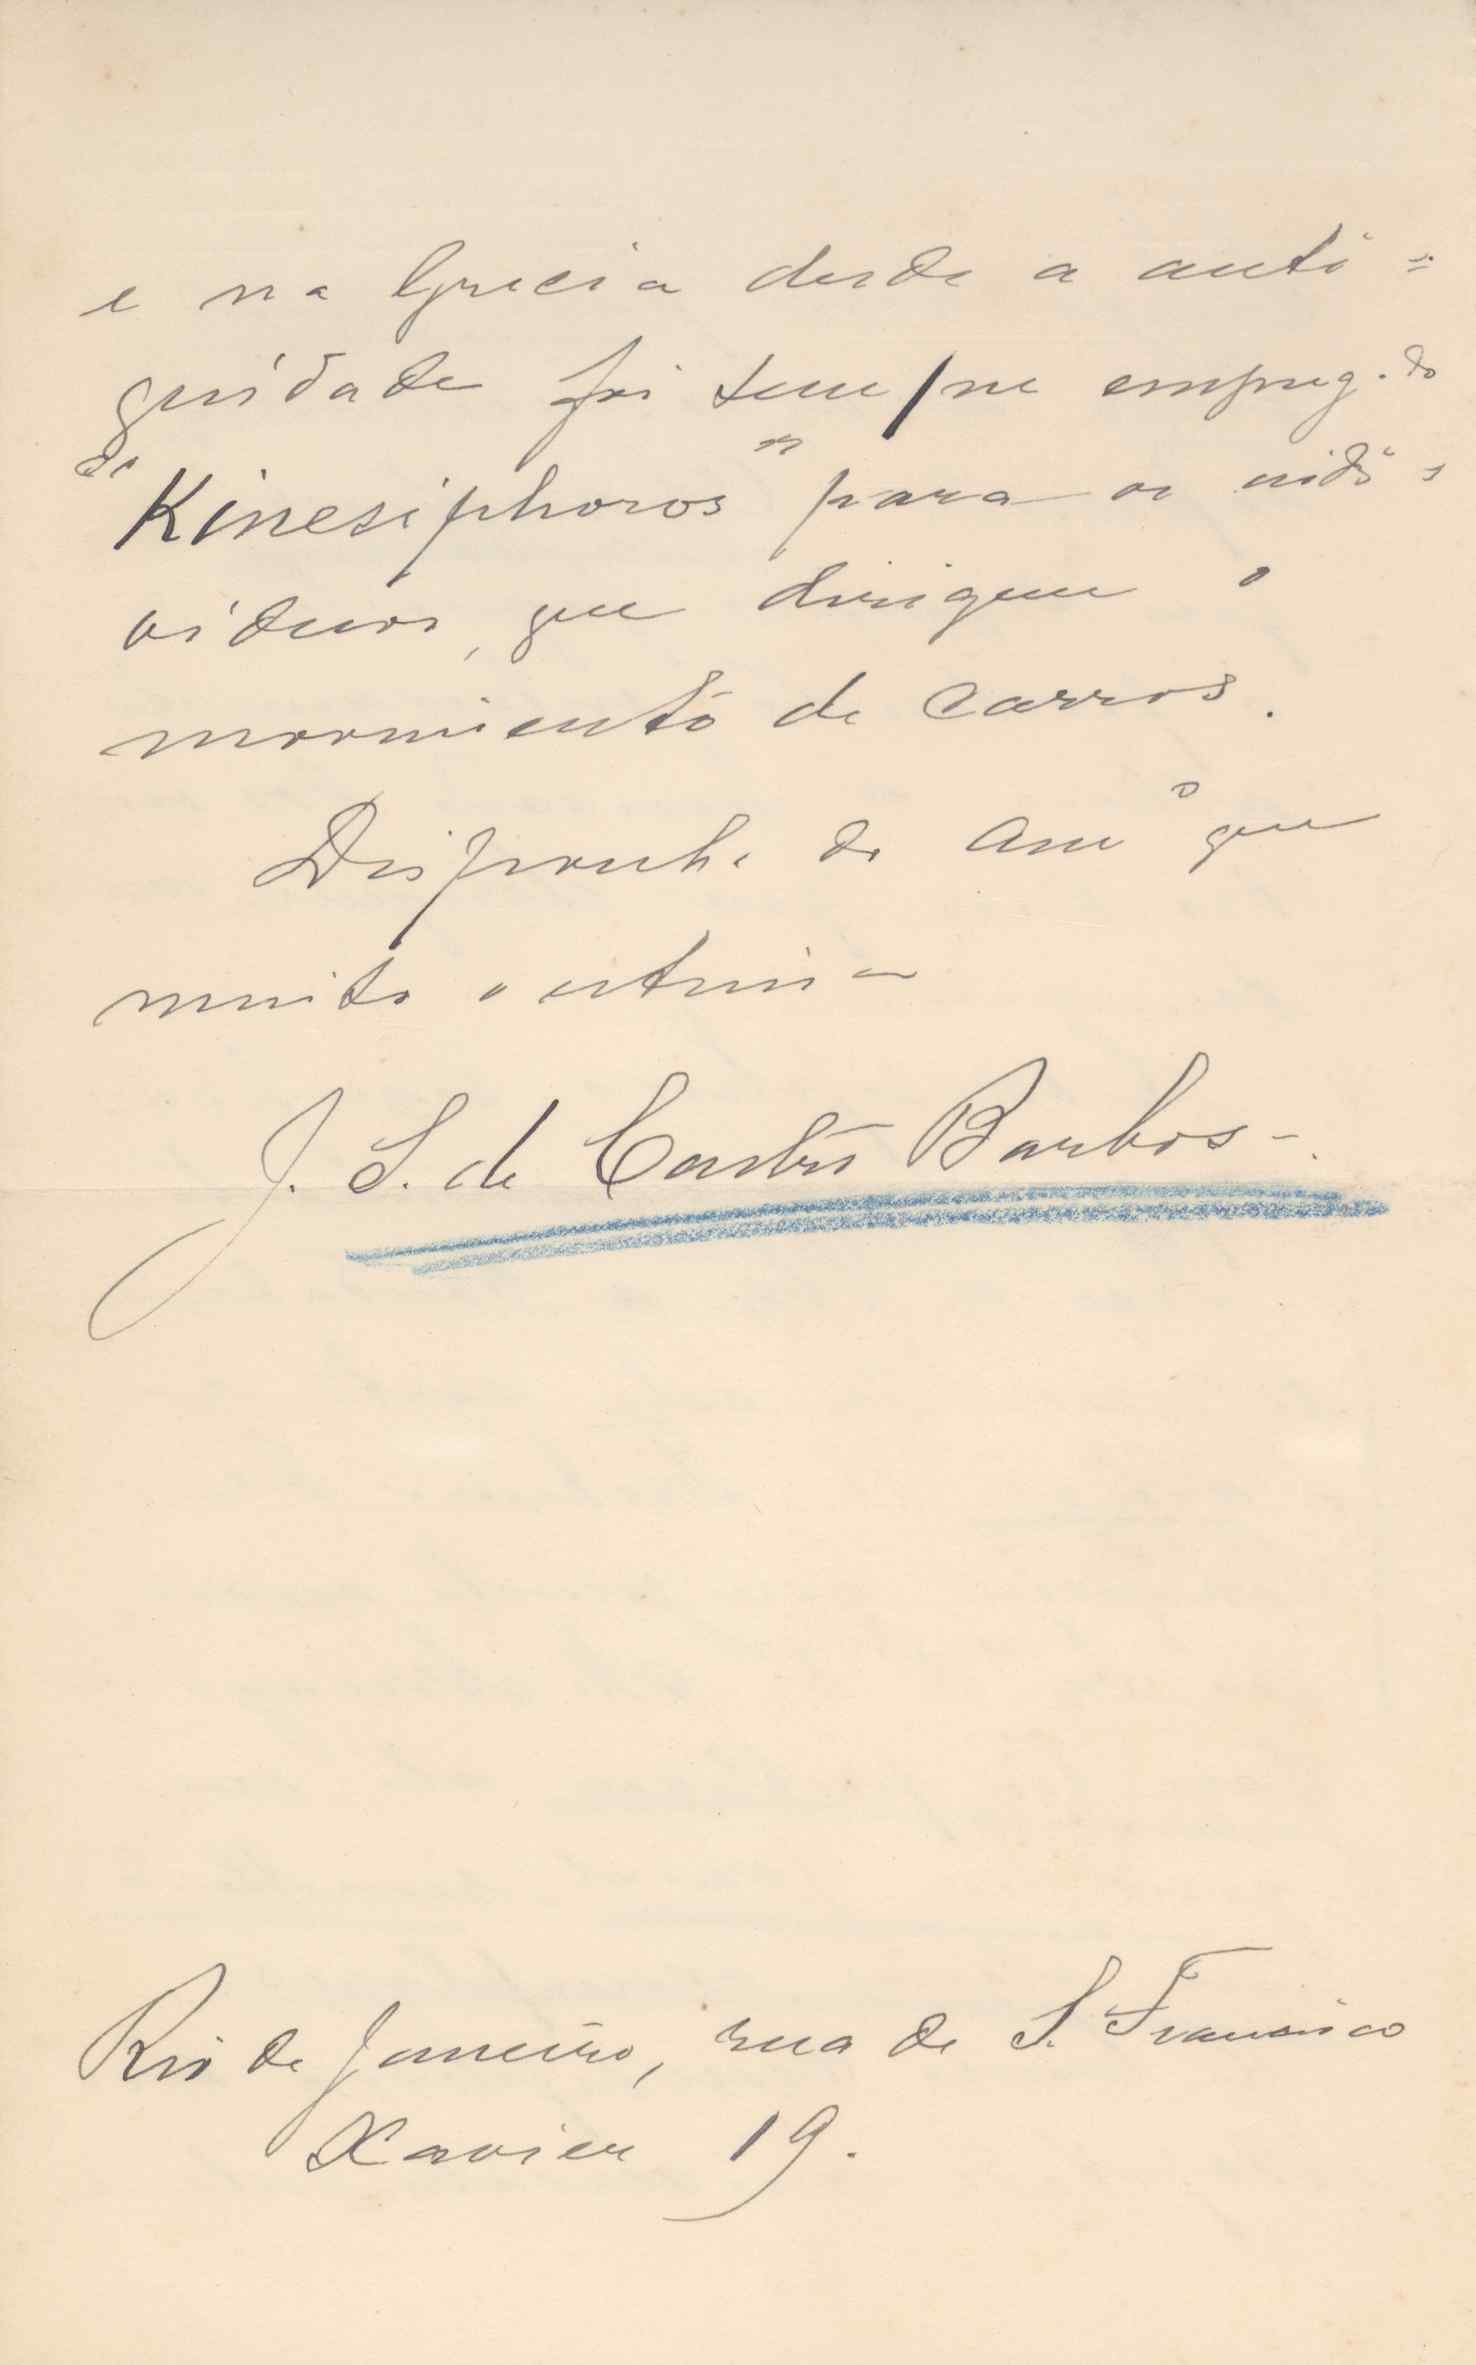 e na Grecia desde a anti=
guidade foi sempre empregado
"Kinesiphoros" para os indi=
viduos, que dirigem o
movimento de carros.
Disponha do amº que
muito o estima
J. S. de Castro Barbosa.
Rio de Janeiro, rua de S. Francisco
Xavier 19.